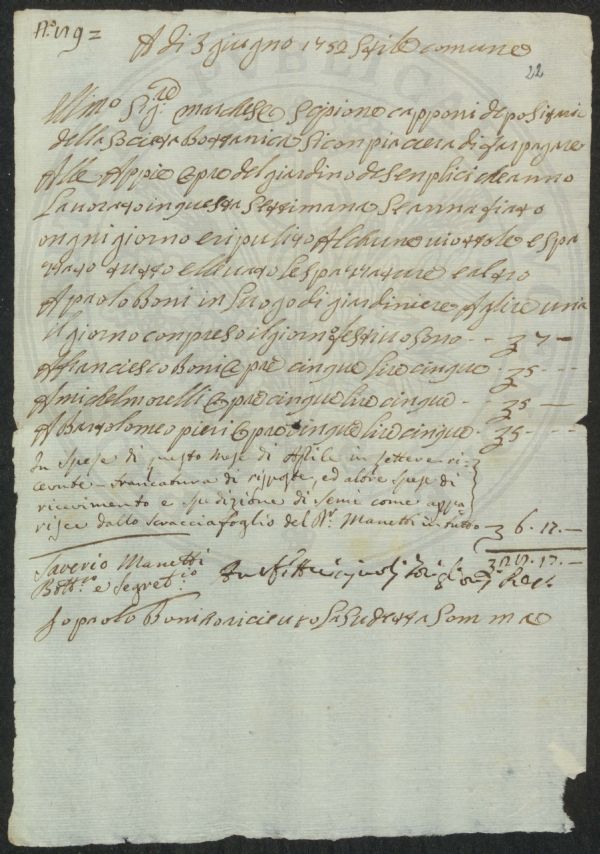 N.o 119=
A di 3 giugno 1752 Stile comune
22
Illmo Sig.re marchese Scipione capponi depositari
della Societa Bottanica si conpiacera di far pagare
Alle Appie Opre del giardino de senplici che anno
Lavorato in questa Settimana Se anna fiato
ongni giorno e ripulito Alchune viottole e spa
zzato tutto e llevato le spazzature e altro
A paolo Boni in luogo di giardiniere A glire una
il giorno conpreso il giorno festivo sono - - 7 -
A franciesco Boni Opre cinque lire cinque - 5 - - -
A mi del morelli Opre cinque lire cinque - - 5 -
A Bartolomeo pieri Opre cinque lire cinque - 5 - - -
In spese di questo mese di Aprile in lettere ri-
cevute francatura di risposte, ed altre spese di
ricevimento e spedizione di semi come appa-
risce dallo stracciafoglio del D.r Manetti in tutto 6. 17. -
Saverio Manetti
Bott.co e Segret.rio
Io paolo Boni o ricieuto la sudetta Somma